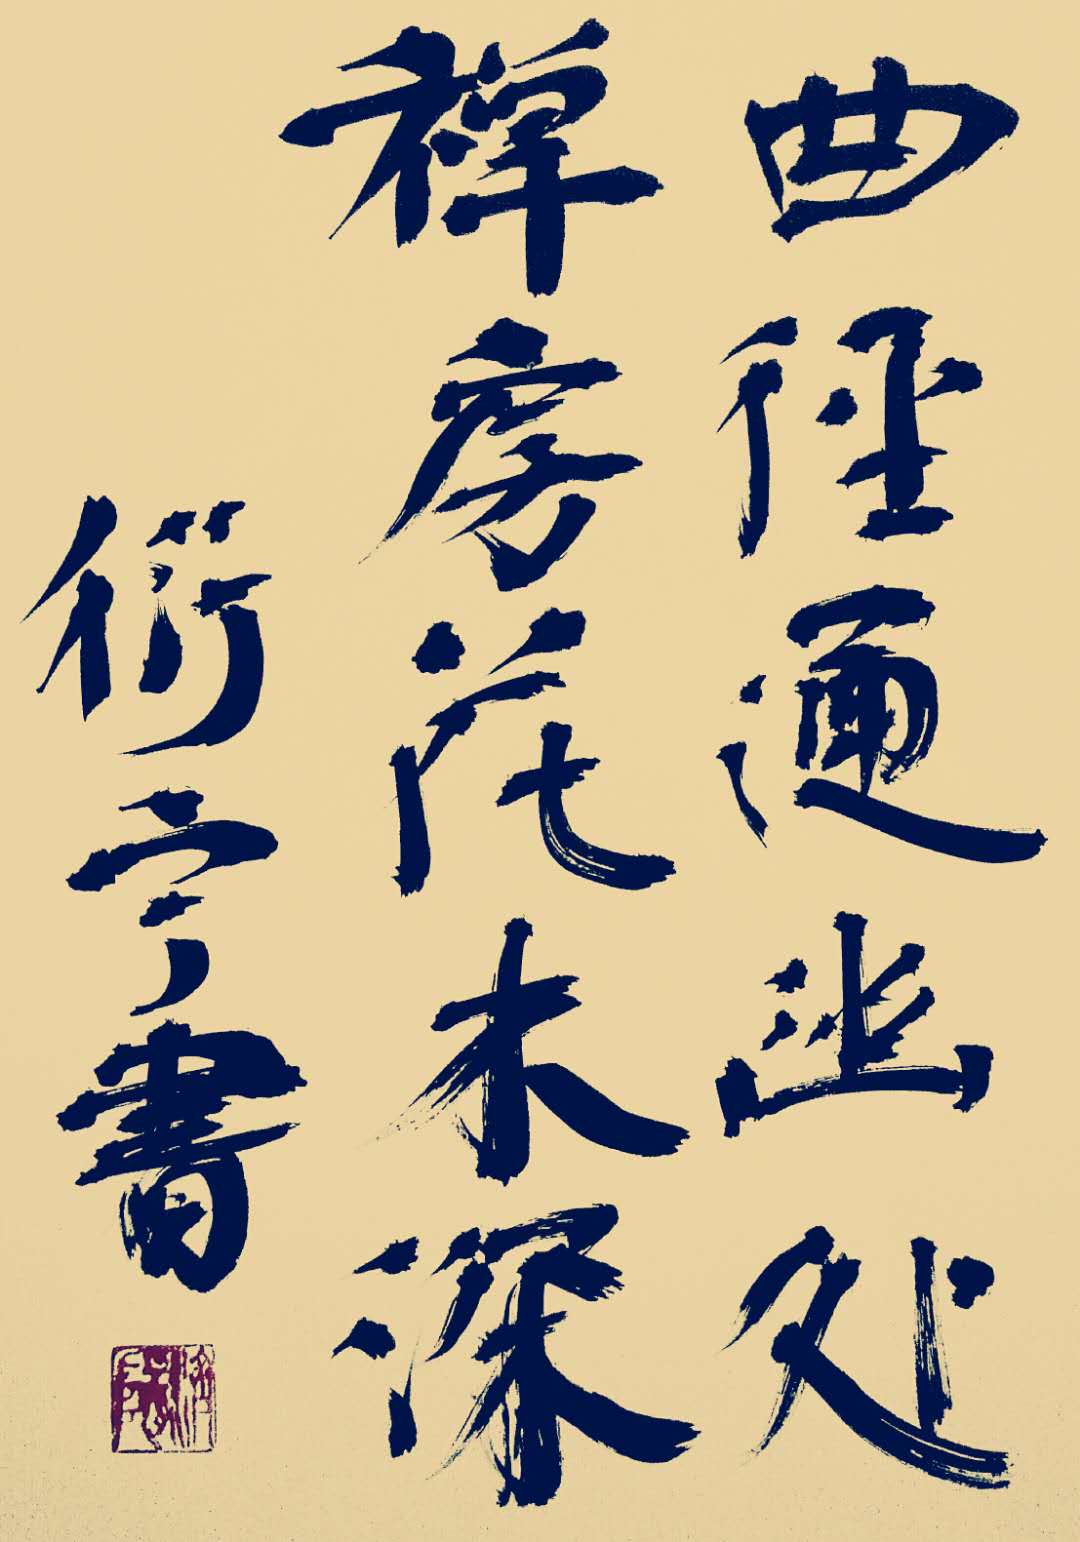 曲径通幽处
禅房花木深
衍宇書